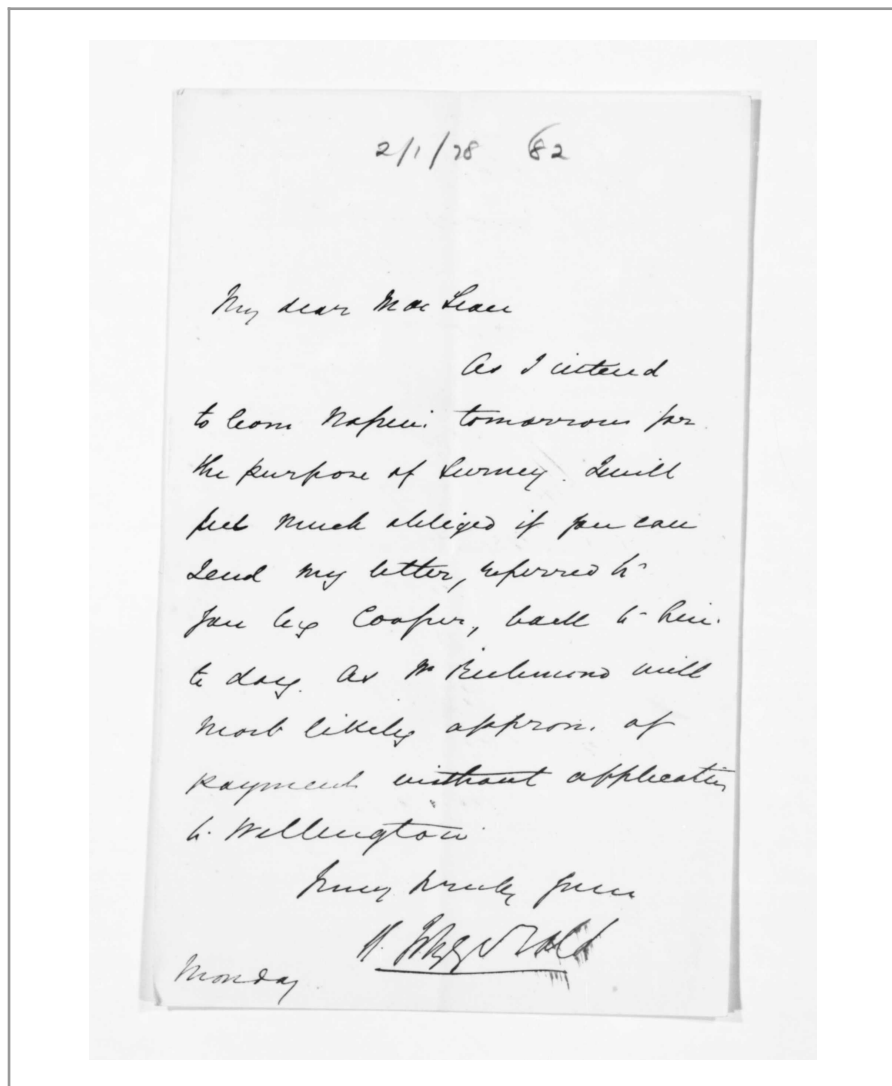 2/1/78 82
My dear MacLean
As I intend
to leave Napier tomorrow for
the purpose of Survey. I will
feel much obliged if you can
Send my letter, referred to
you by Cooper, back to him
to day. As Mr Richmond will
most likely approve of
payment without application
to Wellington
Very truly yours
Fitzgerald
Monday